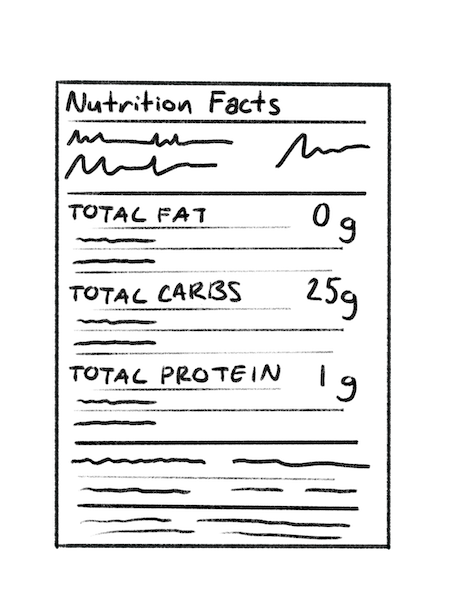 Nutrition Facts
TOTAL FAT 0g
TOTAL CARBS 25g
TOTAL PROTEIN 1g